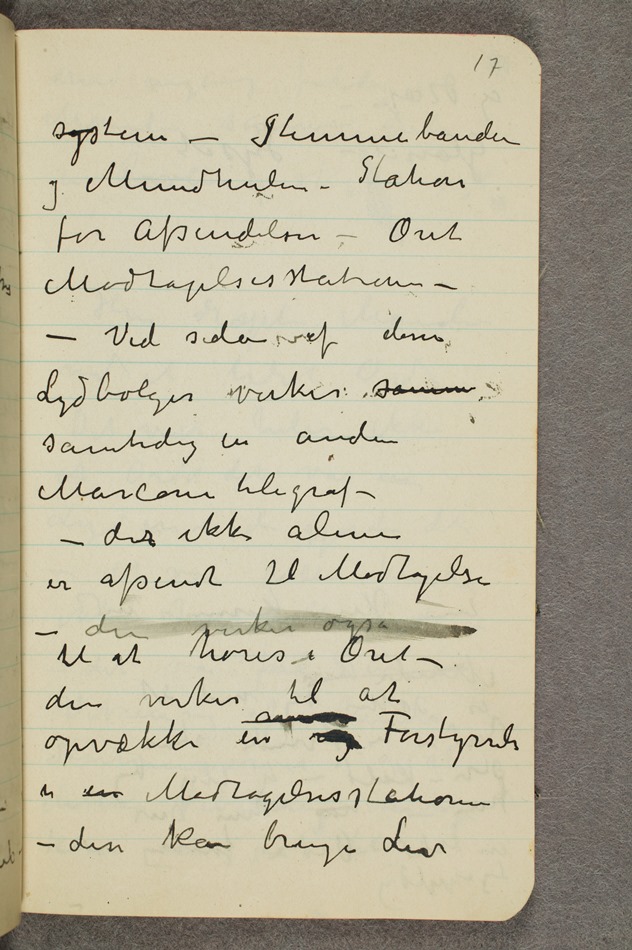 17
system – Stemmebander
og Mundhulen – Station
for Afsendelsen – Øret
Modtagelsesstationen –
– Ved siden af denne
Lydbølger virker samme
samtidig en anden
Marconi telegraf –
– der ikke alene
er afsendt til Modtagelse
– den virker også
til at høres i Øret –
den virker til at
opvække en Forstyrrelse
i en Modtagelsesstationen
– den kan bringe den